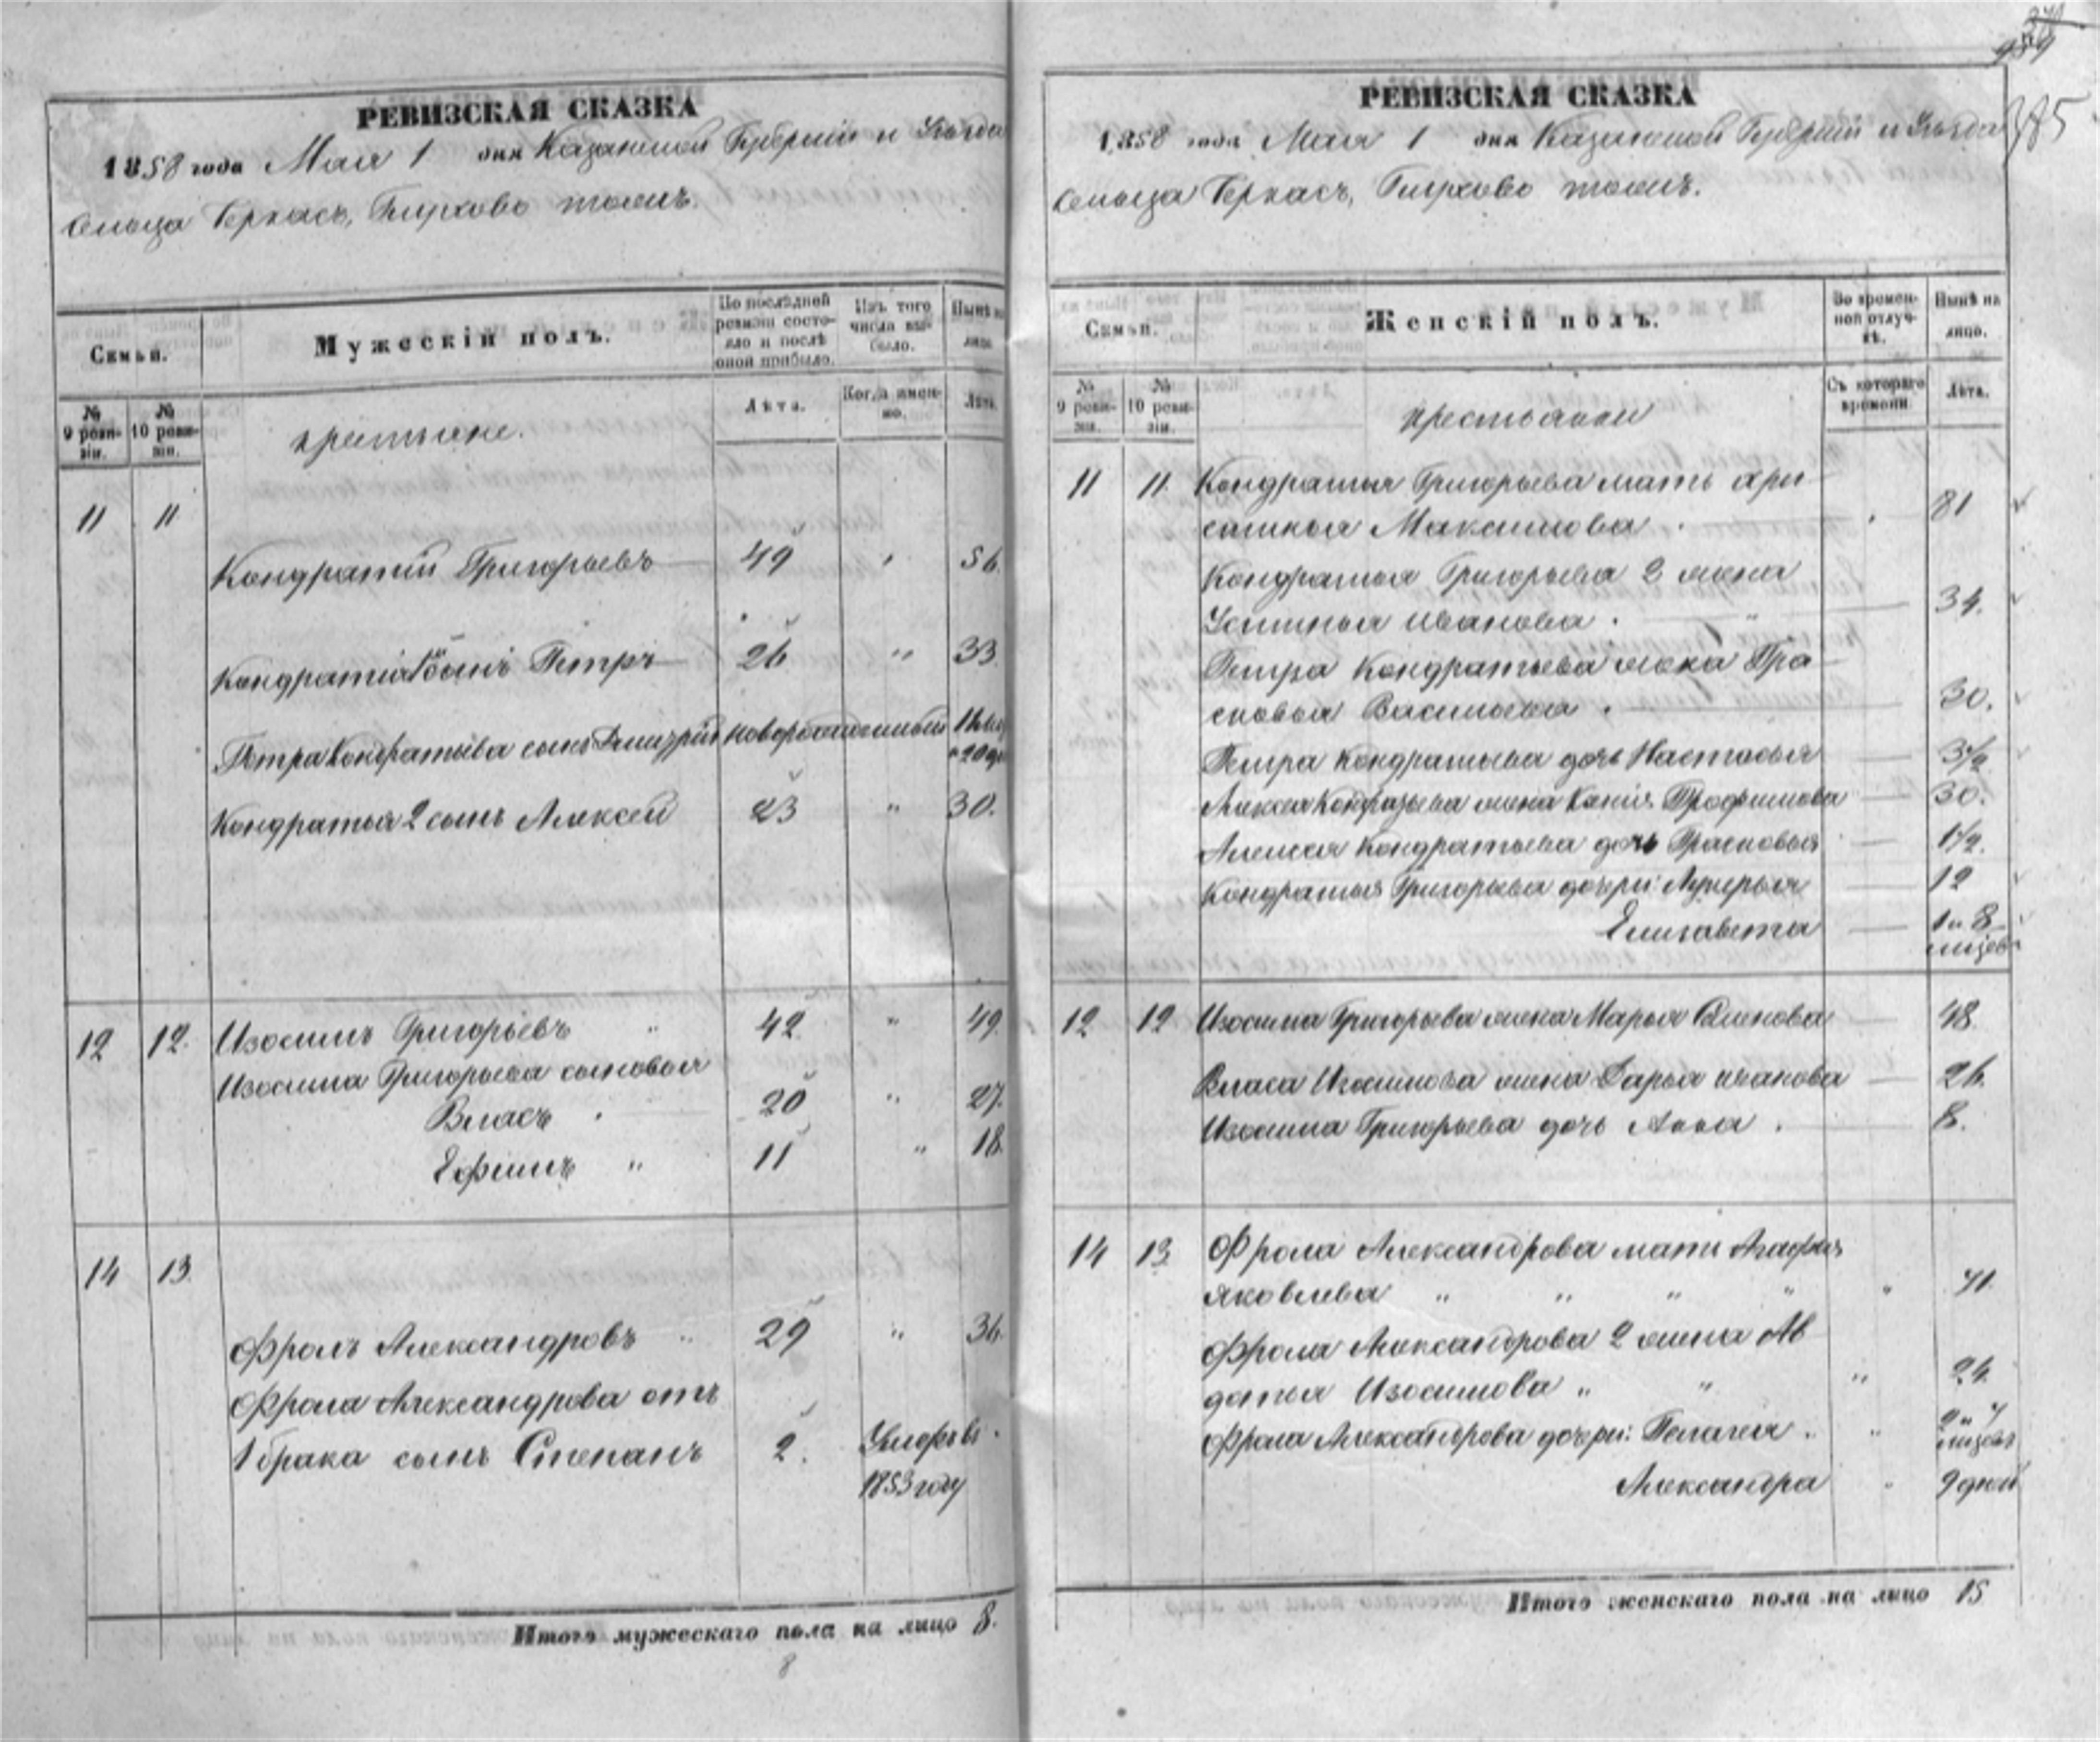 РЕВИЗСКАЯ СКАЗКА
1858 года Мая 1 дня Казанской Губерніи и Уѣзда
Сельца Черкасъ, тожъ.
Семьи.
Мужескій полъ.
По послѣдней ревизіи состояло и послѣ оной прибыло.
Изъ того числа выбыло.
Нынѣ на лицо.
№ 9 ревизіи.
№ 10 ревизіи.
крестьяне.
Лѣта.
Когда именно.
Лѣта.
11 11
Кондратій Григорьевъ 49 " 56.
Кондратія сынъ Петръ 26 " 33.
Петра Кондратьева сынъ Дмитрій новорожденный
Кондратья 2 сынъ Алексей 23 " 30.
12 12. Изосимъ Григорьевъ " 42 " 49.
Изосима Григорьева сыновья
Власъ 20 " 27.
Ефимъ " 11 " 18.
14 13.
Фролъ Александровъ " 29 " 36.
Фрола Александрова отъ
1 брака сынъ Степанъ 2. Умеръ въ
1853 году
Итого мужескаго пола на лицо 8.
8
РЕВИЗСКАЯ СКАЗКА
1858 года Мая 1 дня Казанской Губерніи и Уѣзда
Сельца Черкасъ, тожъ.
Семьи.
Женскій полъ.
Во временной отлучкѣ.
Нынѣ на лицо.
№ 9 ревизіи.
№ 10 ревизіи.
крестьянки
Съ котораго времени
Лѣта.
11 11. Кондратья Григорьева мать Хри
стинья Максимова 81
Кондратья Григорьева 2 жена
Устинья Иванова. 34.
Петра Кондратьева жена Пра
сковья Васильева. 30.
Петра Кондратьева дочь Настасья 3½
Алексея Кондратьева жена Трофимова 30.
Алексея Кондратьева дочь Прасковья 1½.
Кондратья Григорьева дочери: Лукерья 12
Елизавета 1 и 8
месяцевъ
12 12 Изосима Григорьева жена Марья Семенова 48
Власа Изосимова жена Дарья Иванова 26.
Изосима Григорьева дочь Анна. 8.
14 13. Фрола Александрова мать Агафья
Яковлева " " " " "
Фрола Александрова 2 жена Ав
дотья Изосимова " " " 24.
Фрола Александрова дочери: Пелагея. "
месяцевъ
Александра 9 дней
Итого женскаго пола на лицо 15